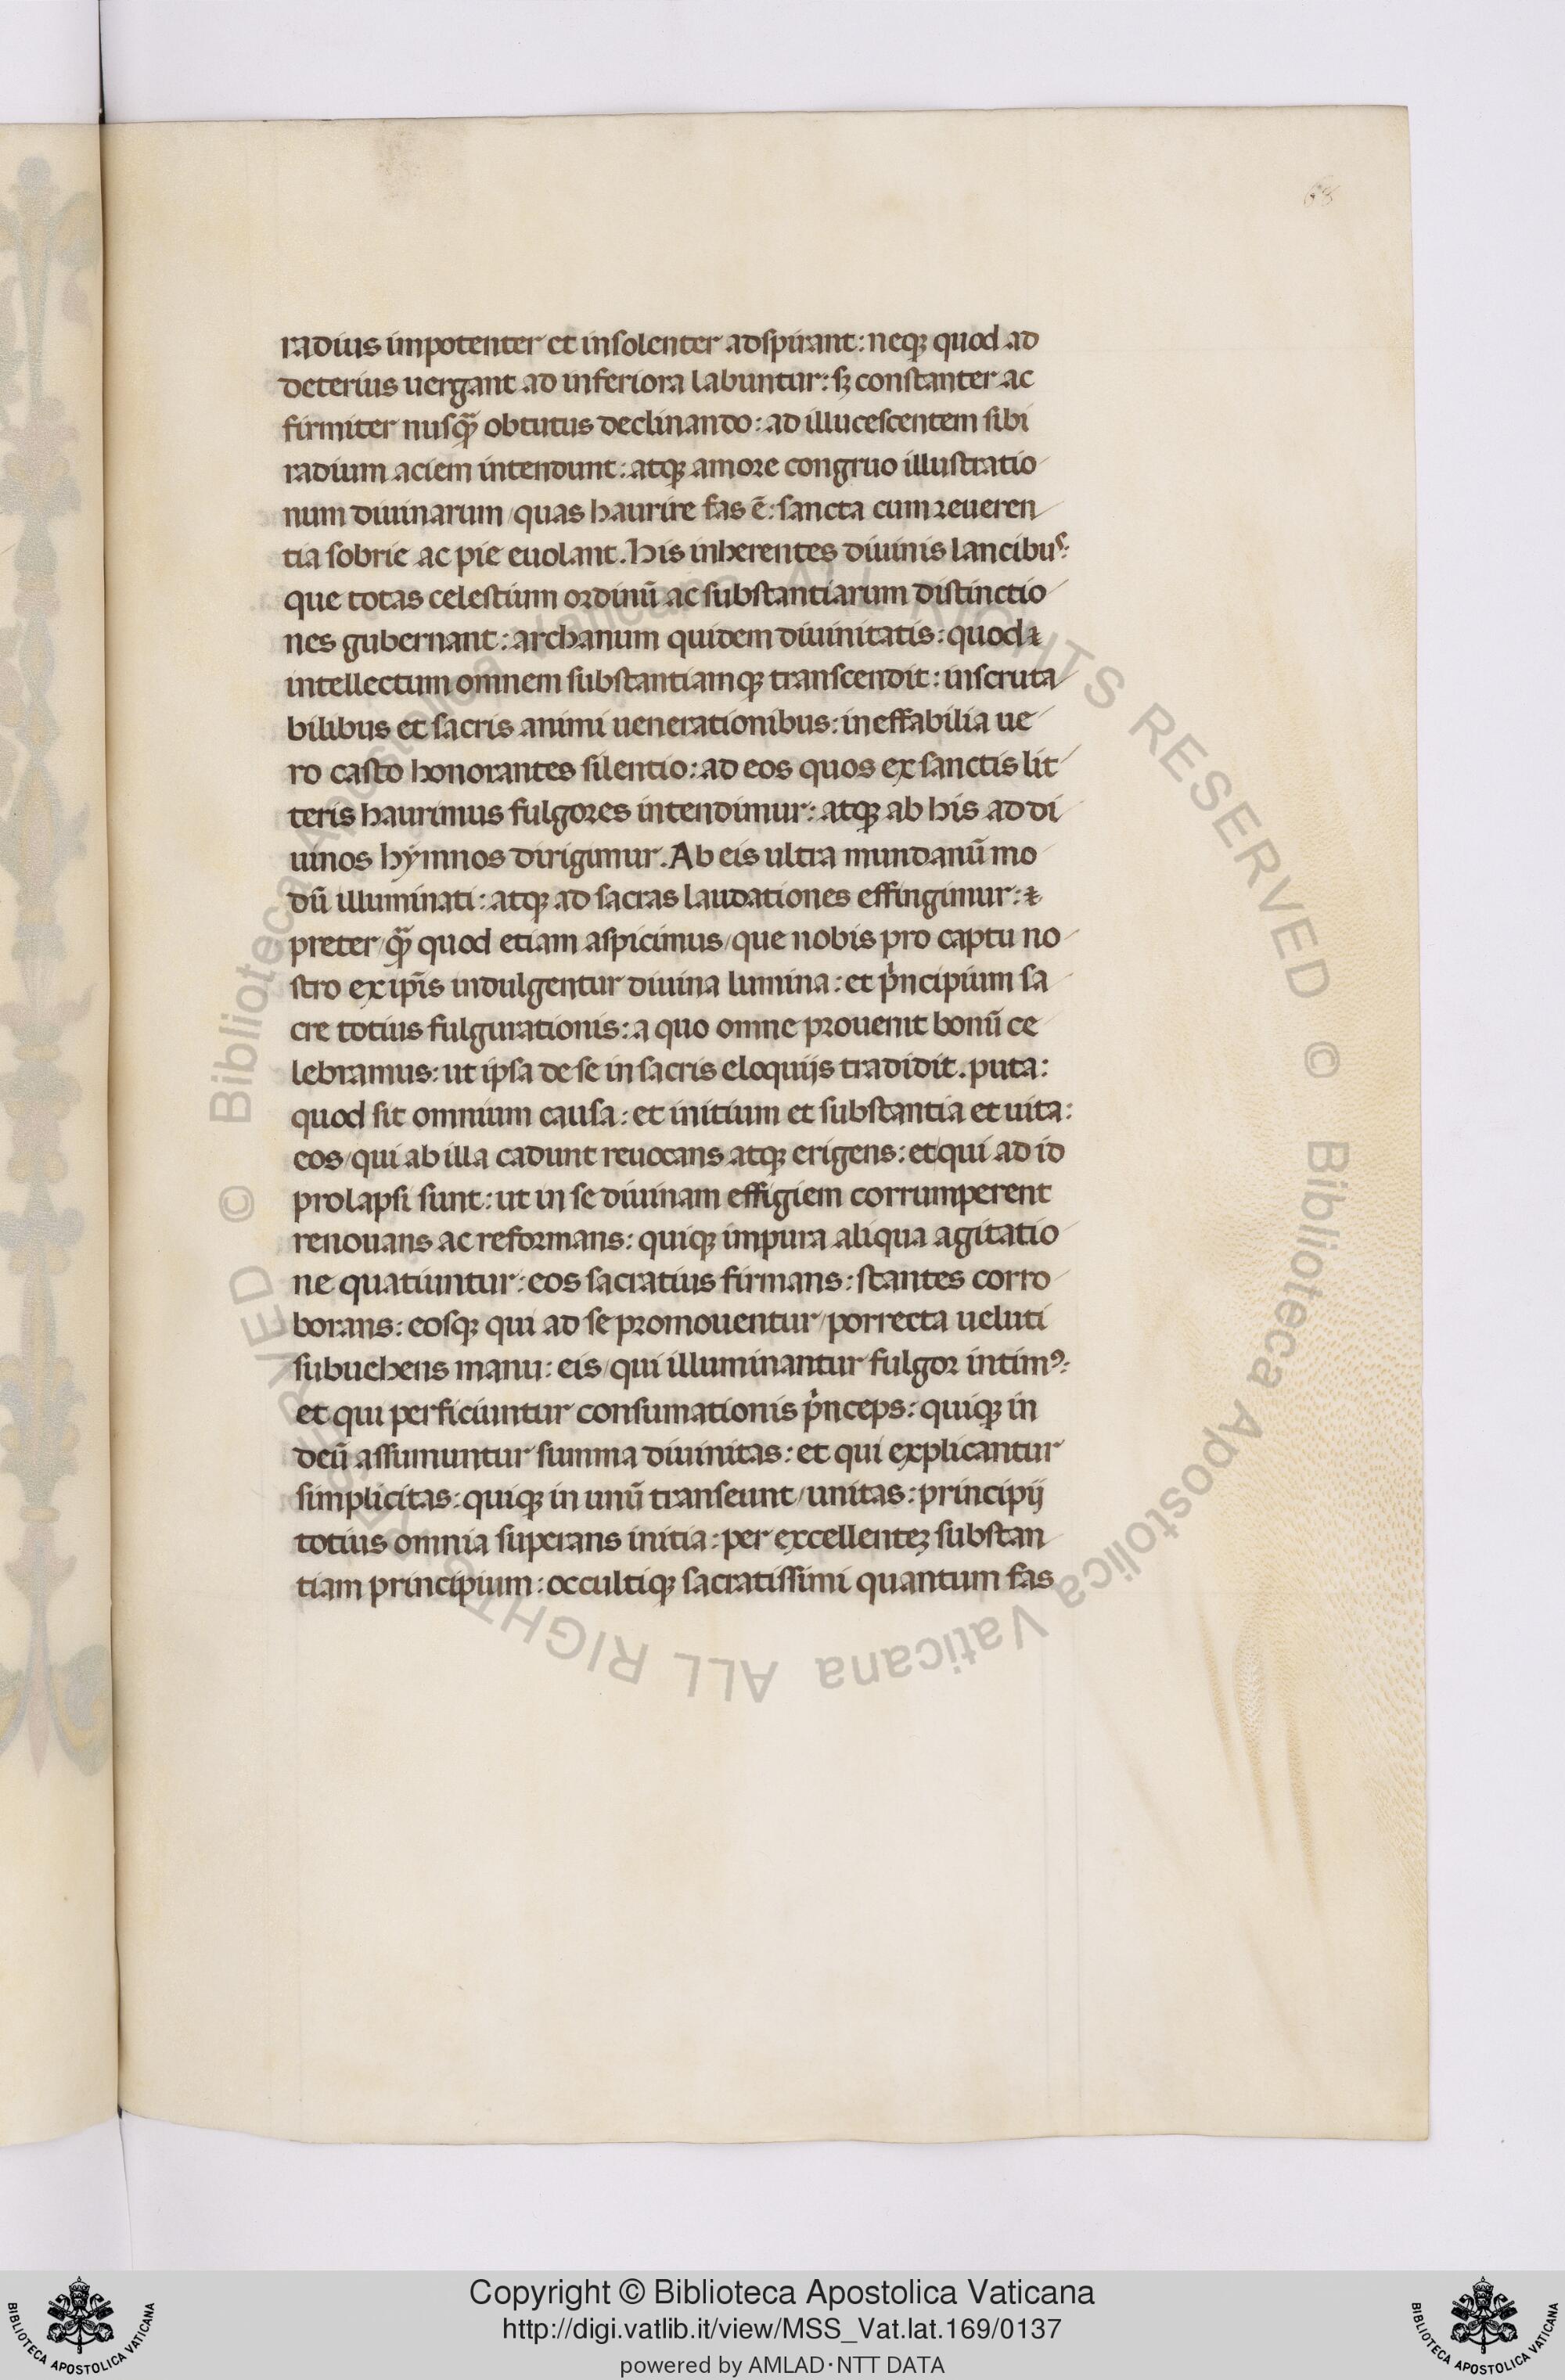 68
radius impotenter et insolenter adspirant: neqꝫ quod ad
deterius uergant ad inferiora labuntur: sꝫ constanter ac
firmiter nusq̃ obtutus declinando: ad illucescentem sibi
radium aciem intendunt: atqꝫ amore congruo illustratio
num diuinarum/quas haurire fas ē: sancta cum reueren
tia sobrie ac pie euolant. His inherentes diuinis lancibus:
que totas celestium ordinū ac substantiarum distinctio
nes gubernant: archanum quidem diuinitatis: quod ⁊
intellectum omnem substantiamqꝫ transcendit: inscruta
bilibus et sacris animi uenerationibus: ineffabilia ue
ro casto honorantes silentio: ad eos quos ex sanctis lit
teris haurimus fulgores intendimur: atqꝫ ab his ad di
uinos hymnos dirigimur. Ab eis ultra mundanū mo
dū illuminati: atqꝫ ad sacras laudationes effingimur: ⁊
preter/q̃ quod etiam aspicimus/que nobis pro captu no
stro ex ip̄is indulgentur diuina lumina: et pͥncipium sa
cre totius fulgurationis: a quo omne prouenit bonū ce
lebramus: ut ipsa de se in sacris eloquijs tradidit. puta:
quod sit omnium causa: et initium et substantia et uita:
eos/qui ab illa cadunt reuocans atqꝫ erigens: et/qui ad id
prolapsi sunt: ut in se diuinam effigiem corrumperent
renouans ac reformans: quiqꝫ impura aliqua agitatio
ne quatiuntur: eos sacratius firmans: stantes corro
borans: eosqꝫ qui ad se promouentur/porrecta ueluti
subuehens manu: eis/qui illuminantur fulgor intimꝰ:
et qui perficiuntur consumationis pͥnceps: quiqꝫ in
deū assumuntur summa diuinitas: et qui explicantur
simplicitas: quiqꝫ in unū transeunt/unitas: principij
totius omnia superans initia: per excellenteꝫ substan
tiam principium: occultiqꝫ sacratissimi quantum fas
© Biblioteca Apostolica Vaticana ALL RIGHTS RESERVED © Biblioteca Apostolica Vaticana ALL RIGHTS RESERVED
Copyright © Biblioteca Apostolica Vaticana
http://digi.vatlib.it/view/MSS_Vat.lat.169/0137
powered by AMLAD·NTT DATA
BIBLIOTECA APOSTOLICA VATICANA
BIBLIOTECA APOSTOLICA VATICANA